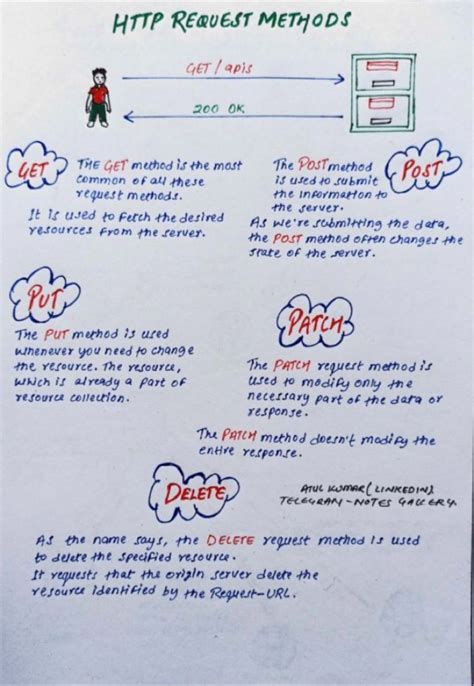 HTTP REQUEST METHODS
GET / apis
200 OK
GET
THE GET method is the most
common of all these
request methods.
It is used to fetch the desired
resources from the server.
POST
The POST method
is used to submit
the information to
the server.
As we're submitting the data,
the POST method often changes the
state of the server.
PUT
The PUT method is used
whenever you need to change
the resource. The resource,
which is already a part of
resource collection.
PATCH
The PATCH request method is
used to modify only the
necessary part of the data or
response.
The PATCH method doesn't modify the
entire response.
DELETE
ATUL KUMAR (LINKEDIN)
TELEGRAM - NOTES GALLERY
As the name says, the DELETE request method is used
to delete the specified resource.
It requests that the origin server delete the
resource identified by the Request-URL.